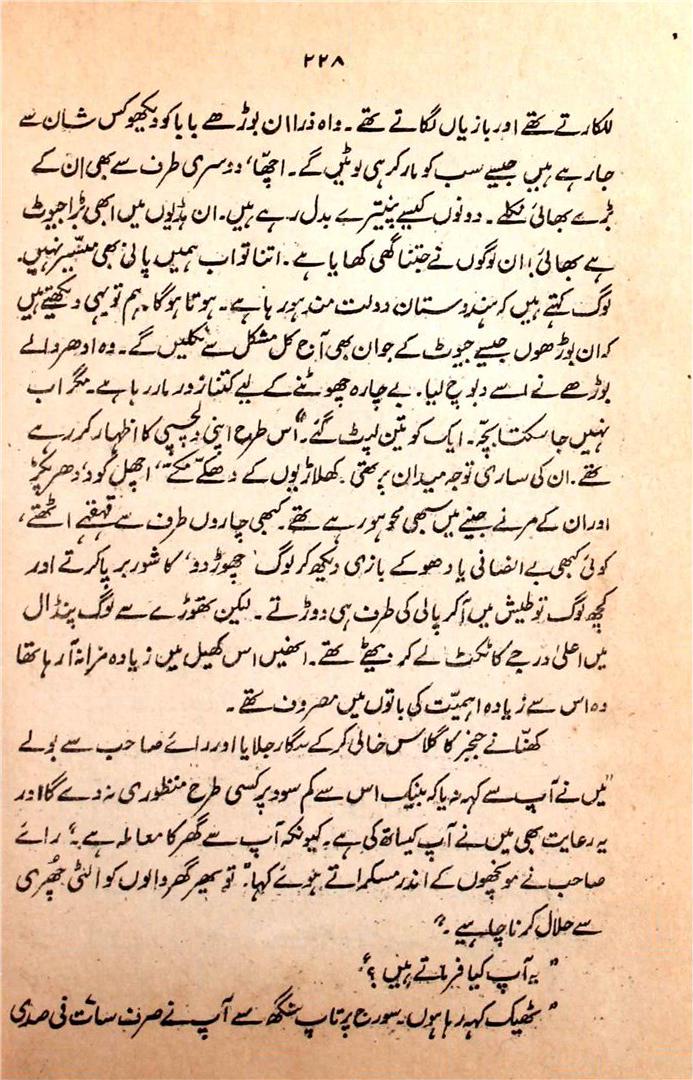 ۲۲۸
للکارتے تھے اور بازیاں لگاتے تھے۔ واہ ذرا ان بوڑھے بابا کو دیکھو کس شان سے
جارہے ہیں جیسے سب کو مار کر ہی لوٹیں گے۔ اچھا، دوسری طرف سے بھی ان کے
بڑے بھائی نکلے۔ دونوں کیسے پینترے بدل رہے ہیں۔ ان ہڈیوں میں ابھی بڑا جیوٹ
ہے بھائی! ان لوگوں نے جتنا گھی کھایا ہے۔ اتنا تو اب ہمیں پانی بھی میسّر نہیں۔
لوگ کہتے ہیں کہ ہندوستان دولت مند ہو رہا ہے۔ ہوتا ہوگا۔ ہم تو یہی دیکھتے ہیں
کہ ان بوڑھوں جیسے جیوٹ کے جوان بھی آج کل مشکل سے نکلیں گے۔ وہ ادھر والے
بوڑھے نے اسے دبوچ لیا۔ بے چارہ چھوٹنے کے لیے کتنا زور مار رہا ہے۔ مگر اب
نہیں جا سکتا بچّہ۔ ایک کو تین لپٹ گئے۔" اس طرح اپنی دلچسپی کا اظہار کر رہے
تھے۔ ان کی ساری توجہ میدان پر تھی۔ کھلاڑیوں کے دھکّے مکّے، اچھل کود، دھر پکڑ،
اور ان کے مرنے جینے میں سبھی محو ہو رہے تھے۔ کبھی چاروں طرف سے قہقہے اٹھتے،
کوئی کبھی بے انصافی یا دھوکے بازی دیکھ کر لوگ 'چھوڑ دو' کا شور برپا کرتے اور
کچھ لوگ تو طیش میں آکر پالی کی طرف ہی دوڑتے۔ لیکن تھوڑے سے لوگ پنڈال
میں اعلیٰ درجے کا ٹکٹ لے کر بیٹھے تھے۔ انھیں اس کھیل میں زیادہ مزا نہ آرہا تھا
وہ اس سے زیادہ اہمیّت کی باتوں میں مصروف تھے۔
کھنّا نے جنجر کا گلاس خالی کر کے سگار جلایا اور رائے صاحب سے بولے
"میں نے آپ سے کہہ دیا کہ بینک اس سے کم سود پر کسی طرح منظوری نہ دے گا اور
یہ رعایت بھی میں نے آپ کیساتھ کی ہے۔ کیونکہ آپ سے گھر کا معاملہ ہے۔" رائے
صاحب نے مونچھوں کے اندر مسکراتے ہوئے کہا۔" تو پھر گھر والوں کو الٹی چھری
سے حلال کرنا چاہیے۔"
"یہ آپ کیا فرماتے ہیں؟"
"ٹھیک کہہ رہا ہوں۔ سورج پرتاپ سنگھ سے آپ نے صرف سات فی صدی